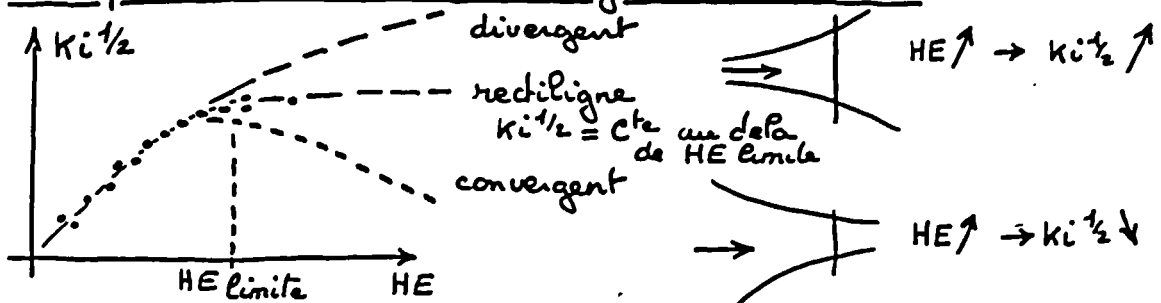 Ki^1/2
divergent
rectiligne
Ki^1/2 = Cte au dela
de HE limite
convergent
HE limite
HE
HE ↗ → Ki^1/2 ↗
HE ↗ → Ki^1/2 ↘